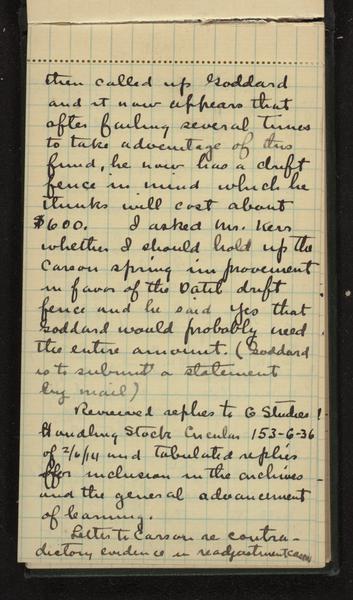 then called up Goddard
and it now appears that
after failing several times
to take advantage of this
fund, he now has a drift
fence in mind which he
thinks will cost about
$600. I asked Mr. Kerr
whether I should hold up the
Carson spring improvement
in favor of the Datil drift
fence and he said yes that
Goddard would probably need
the entire amount. (Goddard
is to submit a statement
by mail)
Reviewed replies to G Studies
Handling Stock Circular 153-6-36
of 2/6/14 and tabulated replies
for inclusion in the archives
and the general advancement
of learning.
Letter to Carson re contra-
dictory evidence in readjustment cases